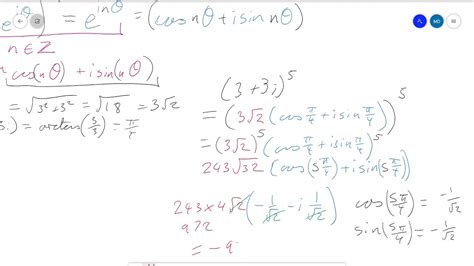 = e^{inθ} = (cos nθ + i sin nθ)
n ∈ Z
cos(nθ) + i sin(nθ)
= √(3²+3²) = √18 = 3√2
= arctan(3/3) = π/4
(3 + 3i)^5
= (3√2 (cos π/4 + i sin π/4))^5
= (3√2)^5 (cos π/4 + i sin π/4)^5
243√32 (cos(5π/4) + i sin(5π/4))
243 × 4√2 (-1/√2 - i 1/√2)
972
= -9
cos(5π/4) = -1/√2
sin(5π/4) = -1/√2